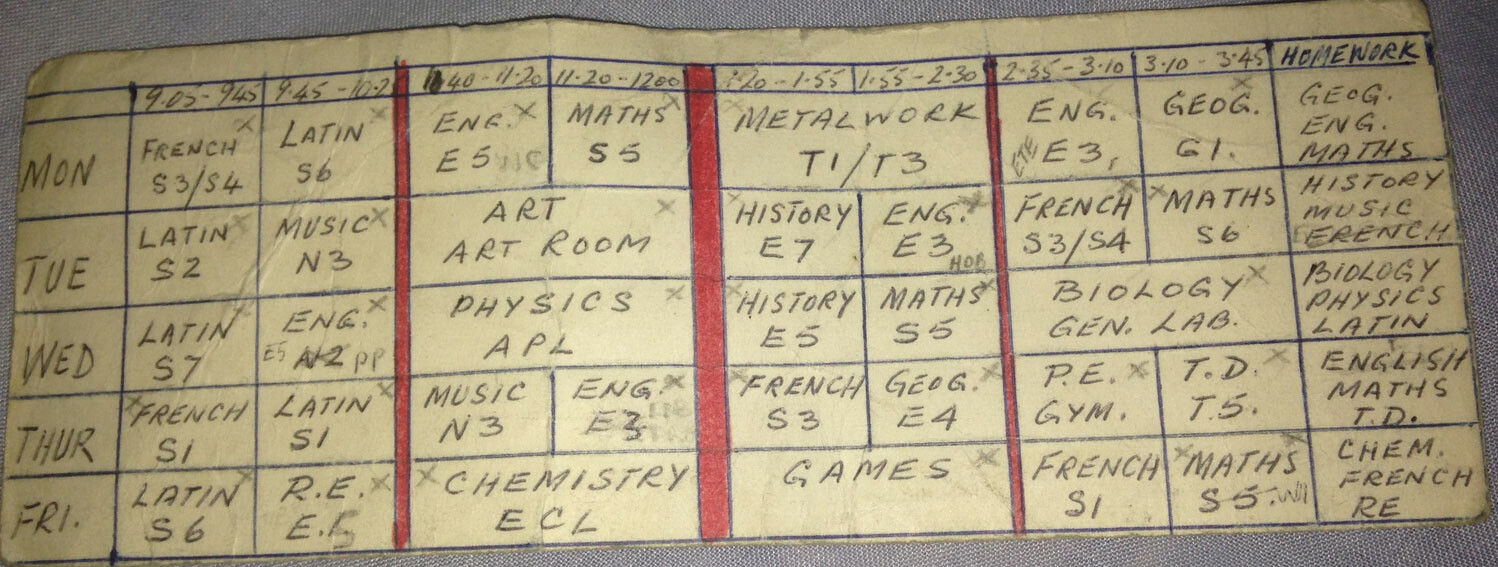 9.05-945 9.45-10.2 1.40-11.20 11.20-1200 1.20-1.55 1.55-2.30 2.35-3.10 3.10-3.45 HOMEWORK
MON
FRENCH LATIN ENG. MATHS METALWORK ENG. GEOG. GEOG.
S3/S4 S6 E5 S5 T1/T3 E3, G1. ENG.
MATHS
TUE
LATIN MUSIC ART HISTORY ENG. FRENCH MATHS HISTORY
S2 N3 ART ROOM E7 E3 HOB S3/S4 S6 MUSIC
FRENCH
WED
LATIN ENG. PHYSICS HISTORY MATHS BIOLOGY BIOLOGY
S7 E5 N2 PP APL E5 S5 GEN. LAB. PHYSICS
LATIN
THUR
FRENCH LATIN MUSIC ENG. FRENCH GEOG. P.E. T.D. ENGLISH
S1 S1 N3 E3 S3 E4 GYM. T.5. MATHS
T.D.
FRI.
LATIN R.E. CHEMISTRY GAMES FRENCH MATHS CHEM.
S6 E.5 ECL S1 S5. FRENCH
RE